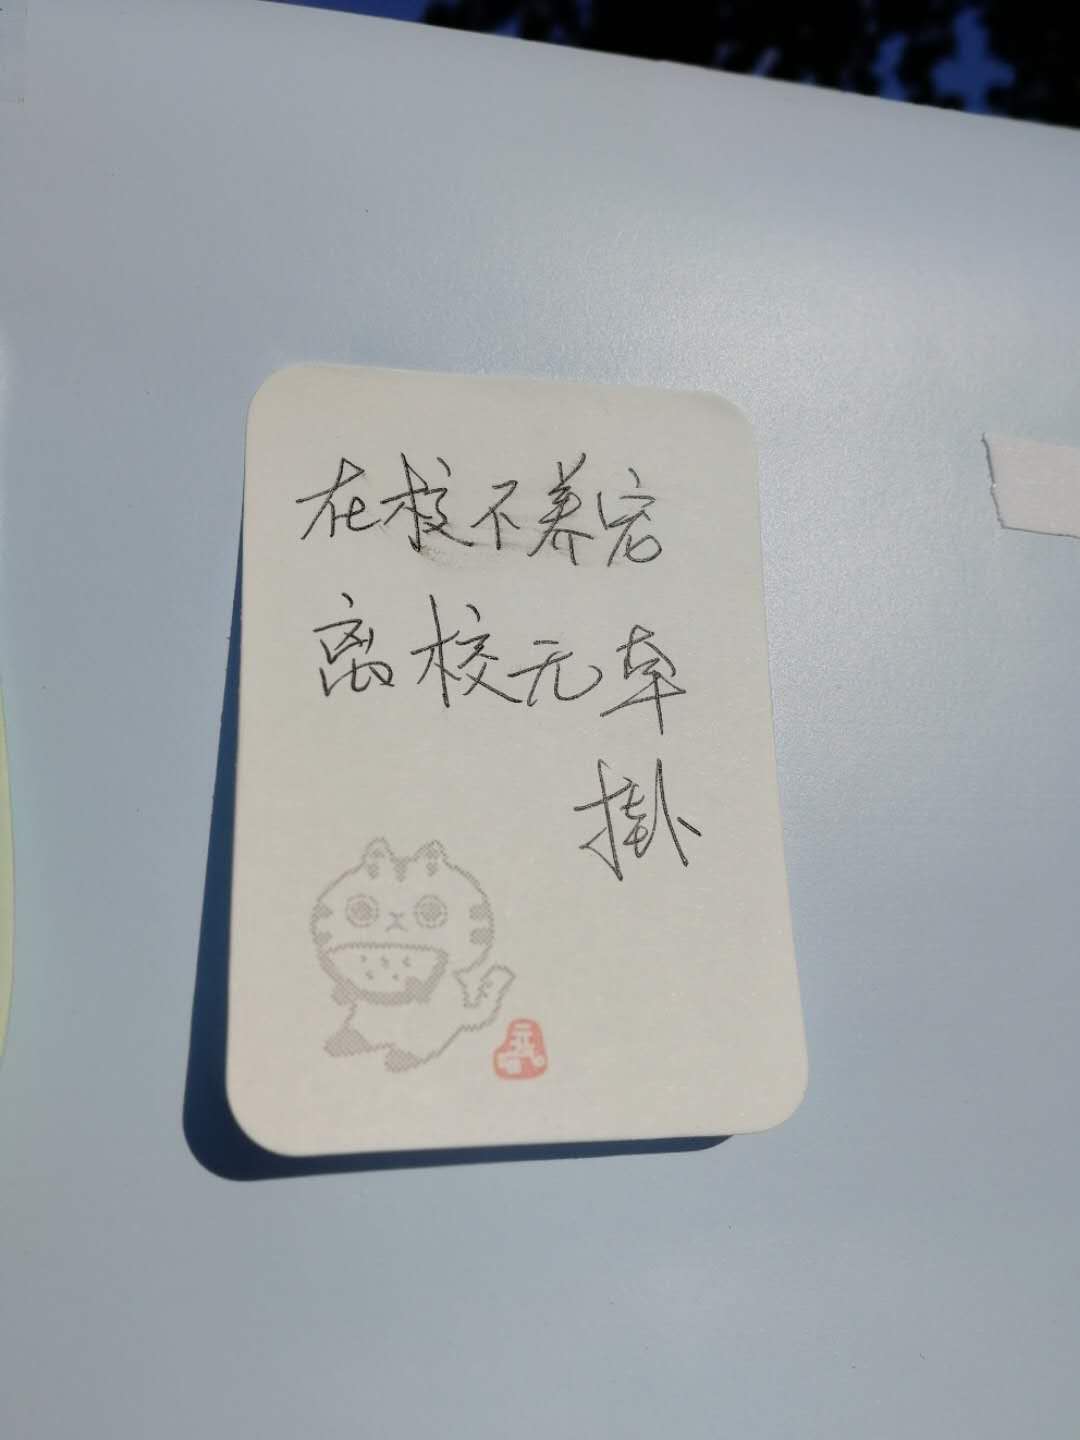 在校不养宠
离校无牵
掛